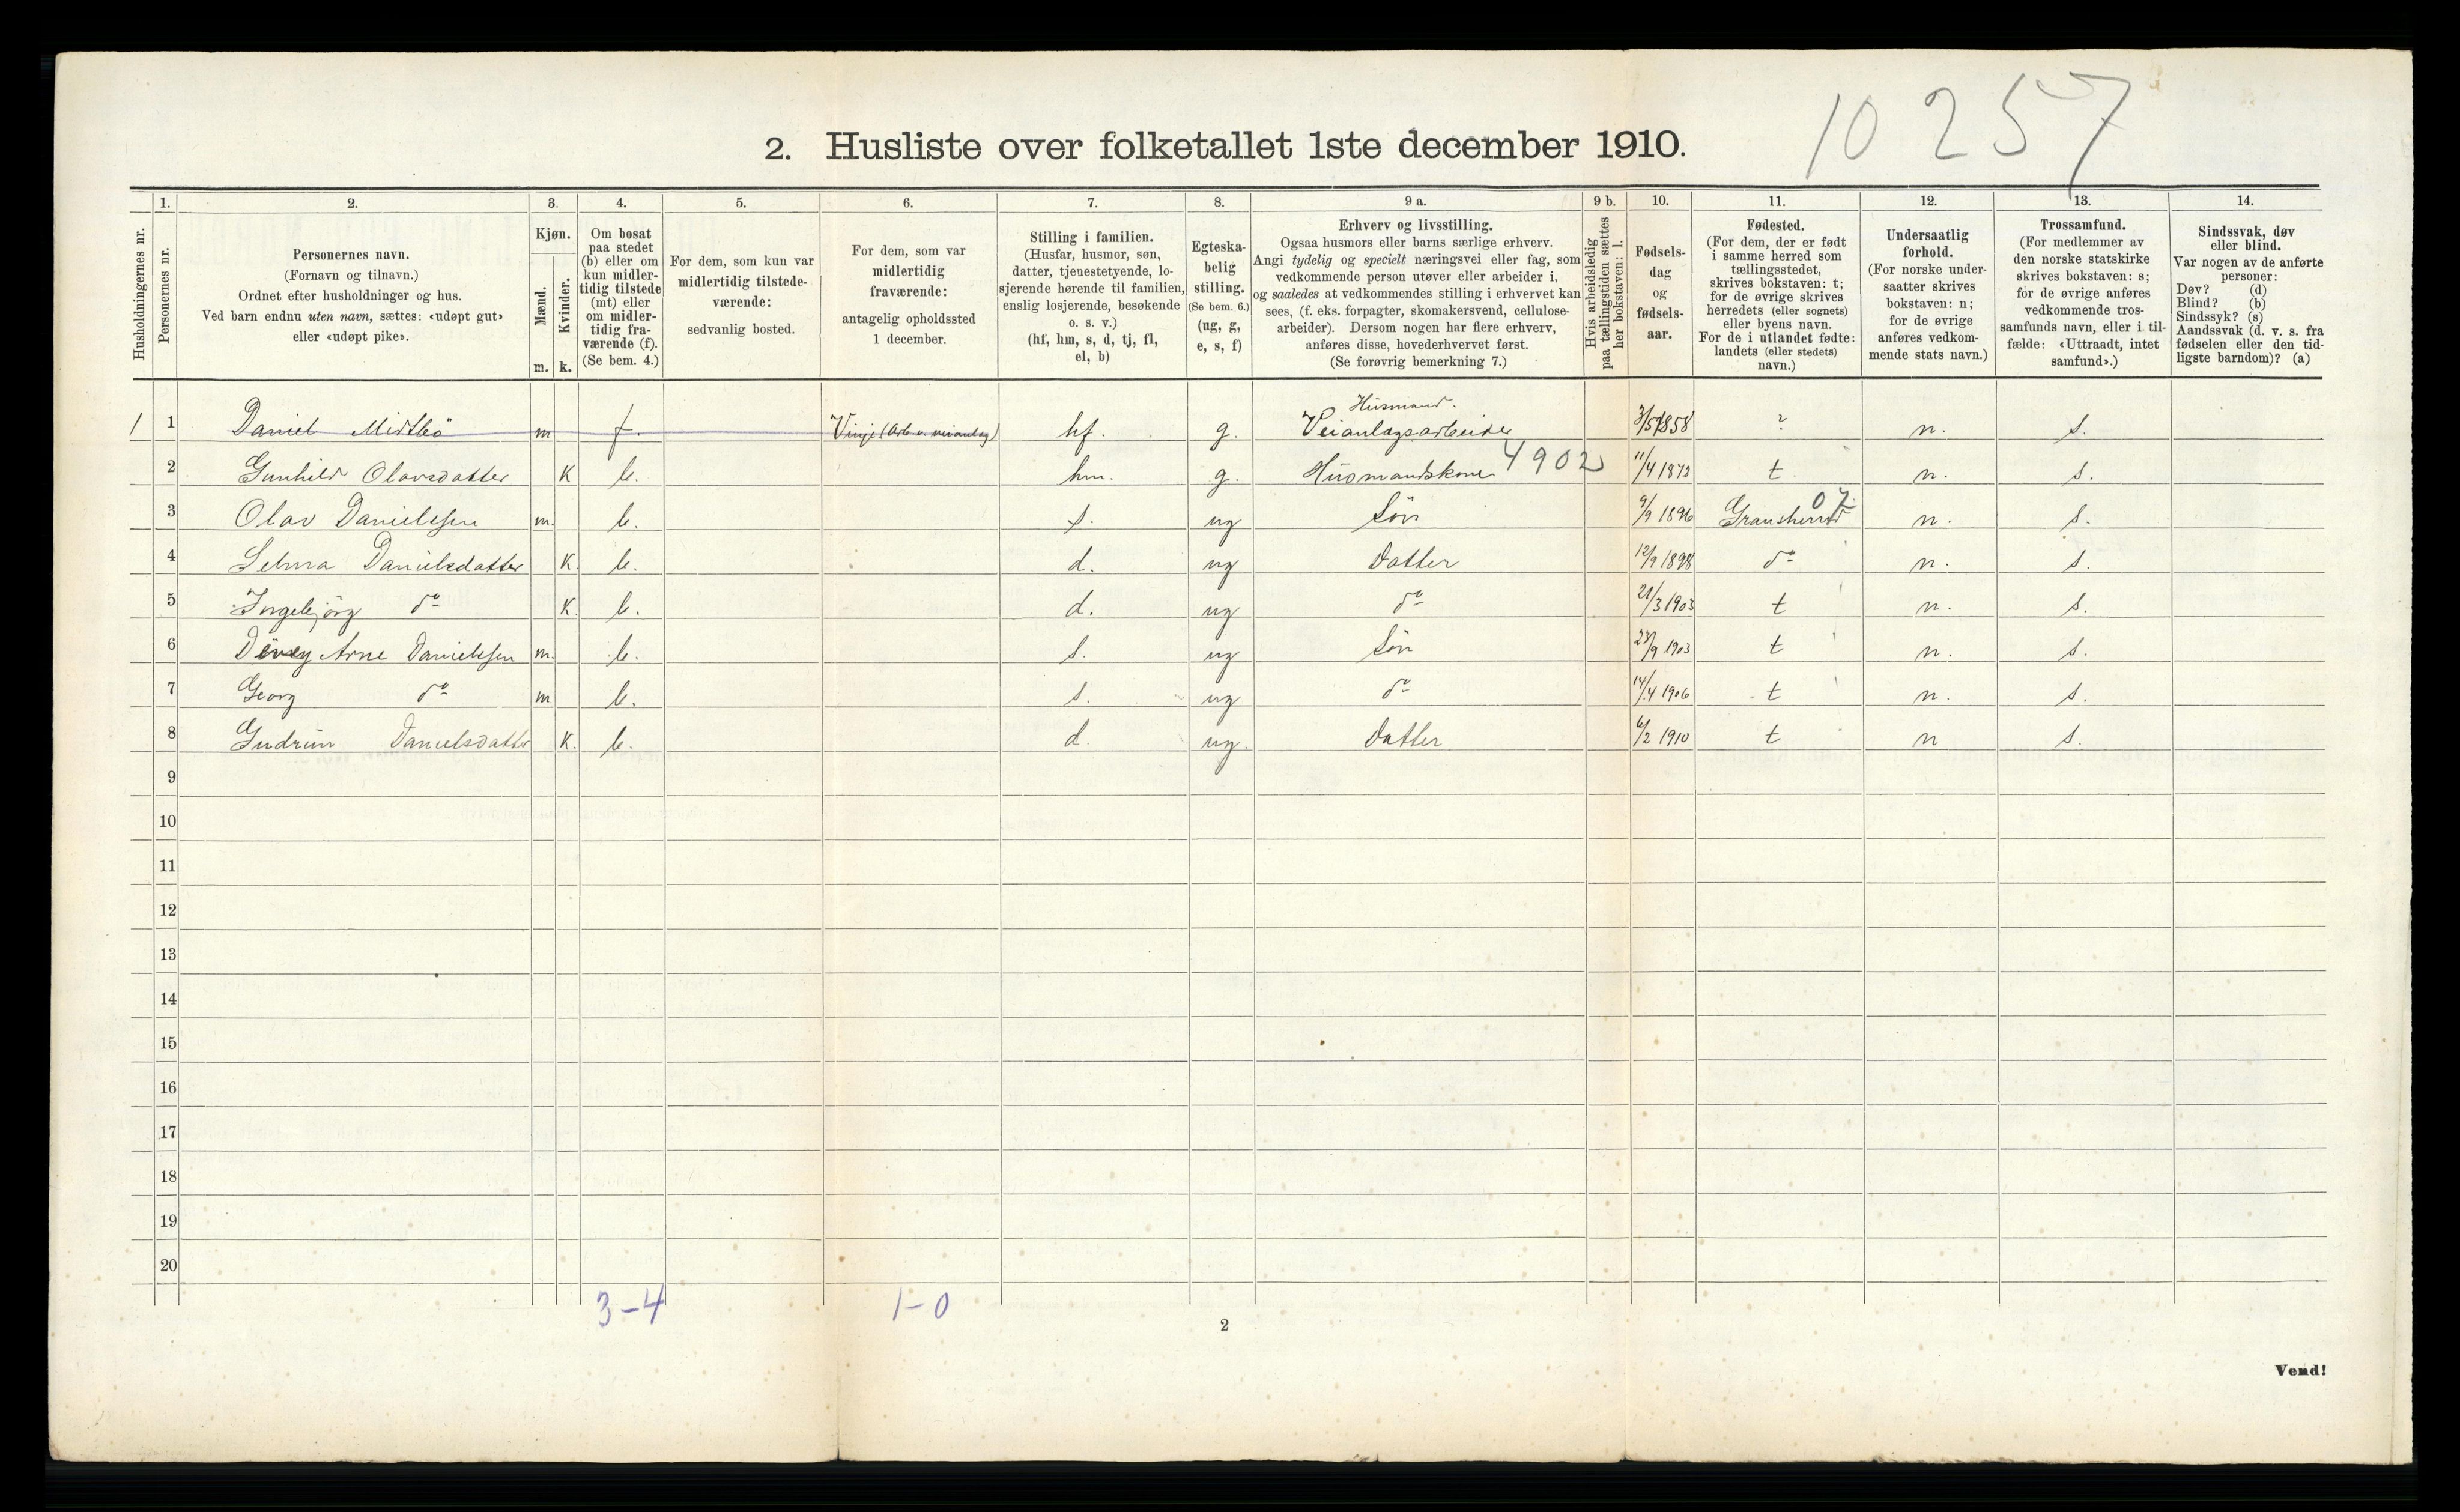 10257
2. Husliste over folketallet 1ste december 1910.
Husholdningernes nr.
1. Personernes nr.
2. Personernes navn. (Fornavn og tilnavn.) Ordnet efter husholdninger og hus. Ved barn endnu uten navn, sættes: «udøpt gut» eller «udøpt pike».
3. Kjøn. Mænd. m. Kvinder. k.
4. Om bosat paa stedet (b) eller om kun midlertidig tilstede (mt) eller om midlertidig fraværende (f). (Se bem. 4.)
5. For dem, som kun var midlertidig tilstedeværende: sedvanlig bosted.
6. For dem, som var midlertidig fraværende: antagelig opholdssted 1 december.
7. Stilling i familien. (Husfar, husmor, søn, datter, tjenestetyende, losjerende hørende til familien, enslig losjerende, besøkende o. s. v.) (hf, hm, s, d, tj, fl, el, b)
8. Egteskabelig stilling. (Se bem. 6.) (ug, g, e, s, f)
9 a. Erhverv og livsstilling. Ogsaa husmors eller barns særlige erhverv. Angi tydelig og specielt næringsvei eller fag, som vedkommende person utøver eller arbeider i, og saaledes at vedkommendes stilling i erhvervet kan sees, (f. eks. forpagter, skomakersvend, cellulosearbeider). Dersom nogen har flere erhverv, anføres disse, hovederhvervet først. (Se forøvrig bemerkning 7.)
9 b. Hvis arbeidsledig paa tællingstiden sættes her bokstaven: l.
10. Fødselsdag og fødselsaar.
11. Fødested. (For dem, der er født i samme herred som tællingsstedet, skrives bokstaven: t; for de øvrige skrives herredets (eller sognets) eller byens navn. For de i utlandet fødte: landets (eller stedets) navn.)
12. Undersaatlig forhold. (For norske undersaatter skrives bokstaven: n; for de øvrige anføres vedkommende stats navn.)
13. Trossamfund. (For medlemmer av den norske statskirke skrives bokstaven: s; for de øvrige anføres vedkommende trossamfunds navn, eller i tilfælde: «Uttraadt, intet samfund».)
14. Sindssvak, døv eller blind. Var nogen av de anførte personer: Døv? (d) Blind? (b) Sindssyk? (s) Aandssvak (d. v. s. fra fødselen eller den tidligste barndom)? (a)
1 1 Daniel Midtbö m f. Vinje (Arb. v. veianlæg) hf. g. Husmand. Veianlægsarbeider 3/5 1858 ? n. s.
2 Gunhild Olavsdatter K b. hm. g. Husmandskone 4902 11/4 1872 t. n. s.
3 Olav Danielssen m. b. s. ug Sön 9/9 1896 Gransherred 07 n. s.
4 Selma Danielsdatter K. b. d. ug Datter 12/9 1898 do n. s.
5 Ingebjörg do K. b. d. ug do 21/3 1903 t n. s.
6 Arne Danielssen m. b. s. ug Sön 1903 t n. s.
7 Georg do m b. s. ug do 14/4 1906 t n. s.
8 Gudrun Danielsdatter K. b. d. ug. Datter 6/2 1910 t n s.
9
10
11
12
13
14
15
16
17
18
19
20
3-4 1-0
2
Vend!